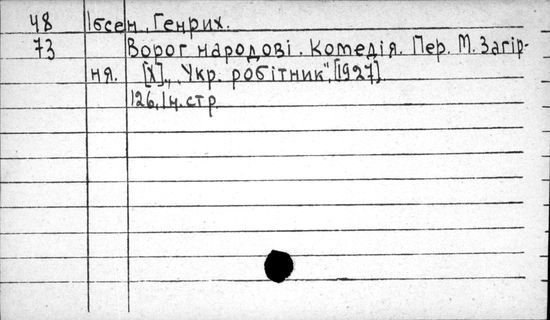 48 Ібсен, Генрих.
73 Ворог народові. Комедія. Пер. М. Загір-
ня. [Х]., "Укр. робітник", [1927].
126, 1 н. стр.